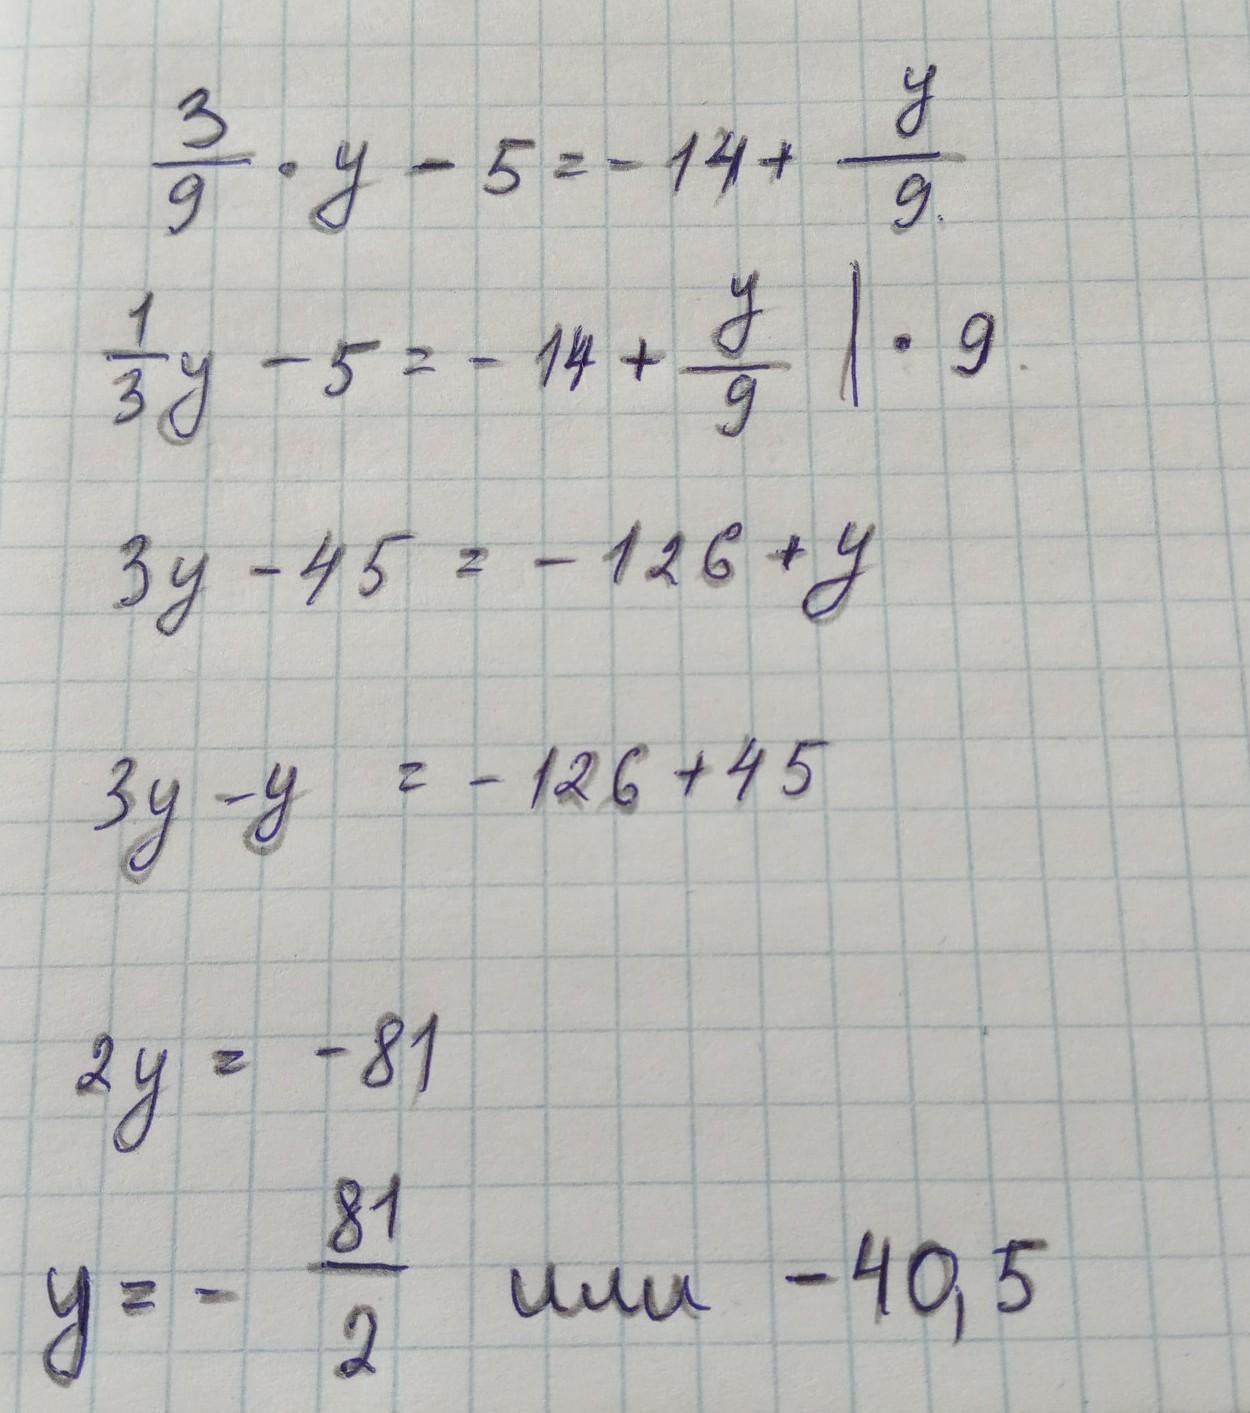 3/9 · y - 5 = - 14 + y/9
1/3 y - 5 = - 14 + y/9 | · 9
3y - 45 = - 126 + y
3y - y = - 126 + 45
2y = - 81
y = - 81/2 или - 40,5